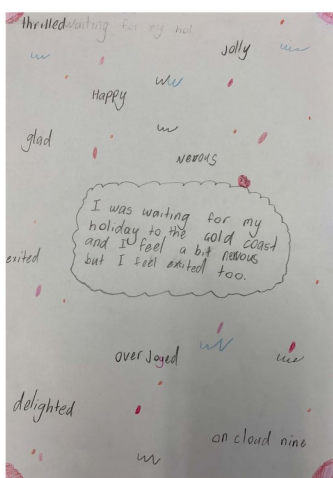 thrilled waiting for my hol
Jolly
Happy
glad
Nervous
I was waiting for my
holiday to the Gold coast
and I feel a bit nervous
but I feel exited too.
exited
over joyed
delighted
on cloud nine